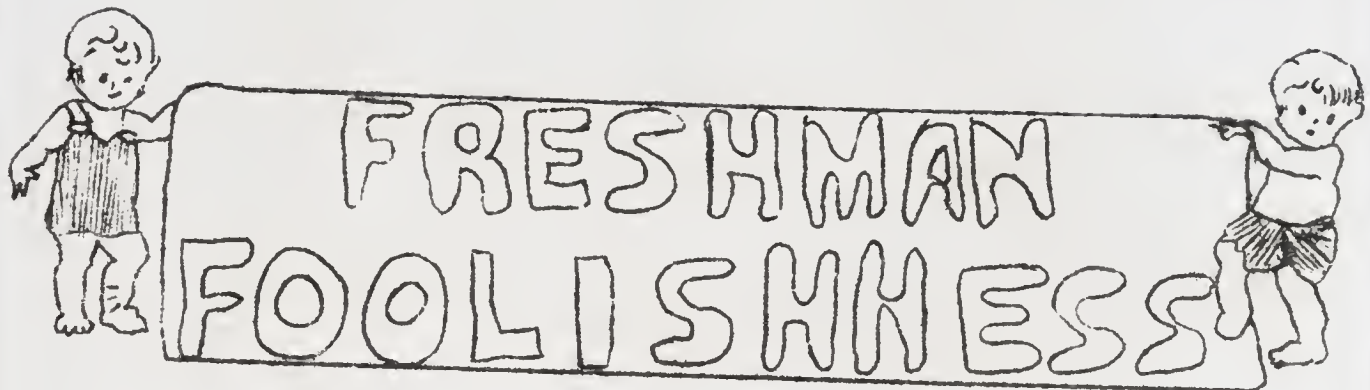 FRESHMAN
FOOLISHNESS